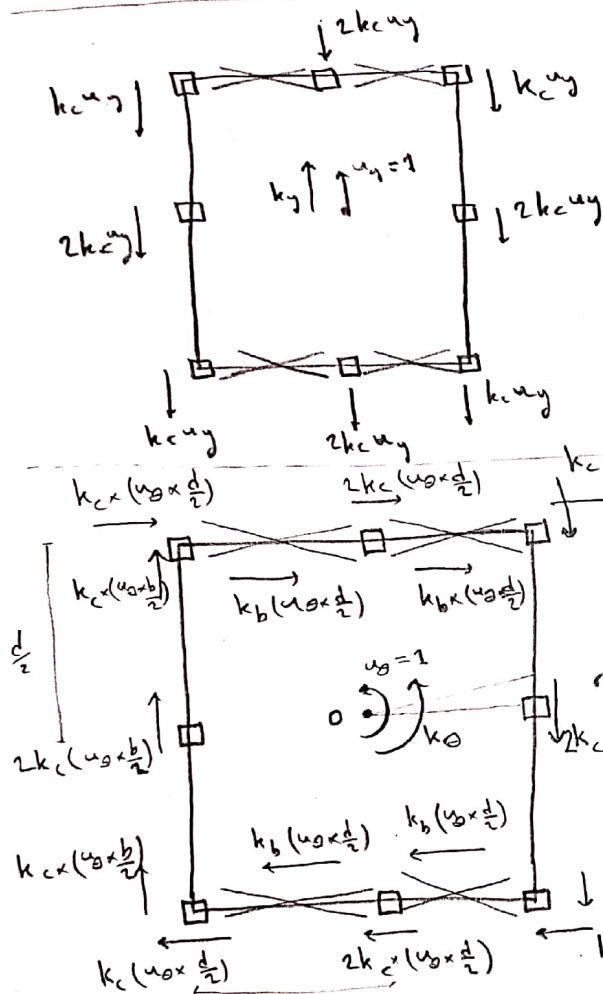 2k_c u_y
k_c u_y
k_c u_y
k_y
u_y = 1
2k_c u_y
2k_c u_y
k_c u_y
2k_c u_y
k_c u_y
k_c × (u_θ × d/2)
2k_c (u_θ × d/2)
k_c
k_c × (u_θ × b/2)
k_b (u_θ × d/2)
k_b × (u_θ × d/2)
d/2
u_θ = 1
O
k_θ
2k_c (u_θ × b/2)
2k_c
k_b (u_θ × d/2)
k_b (u_θ × d/2)
k_c × (u_θ × b/2)
k_c (u_θ × d/2)
2k_c × (u_θ × d/2)